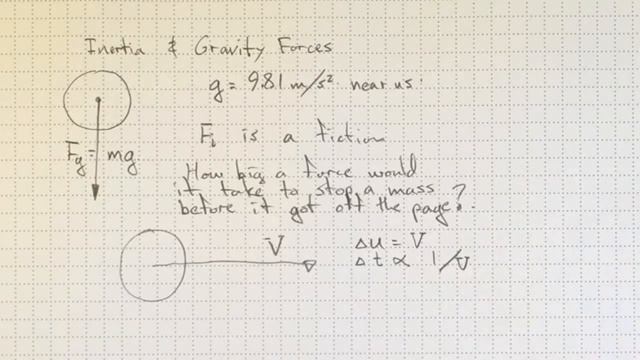 Inertia & Gravity Forces
g = 9.81 m/s² near us.
Fg = mg
Fi is a fiction
How big a force would
it take to stop a mass
before it got off the page?
V
Δu = V
Δt ∝ 1/v